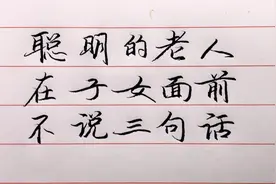 聪明的老人
在子女面前
不说三句话